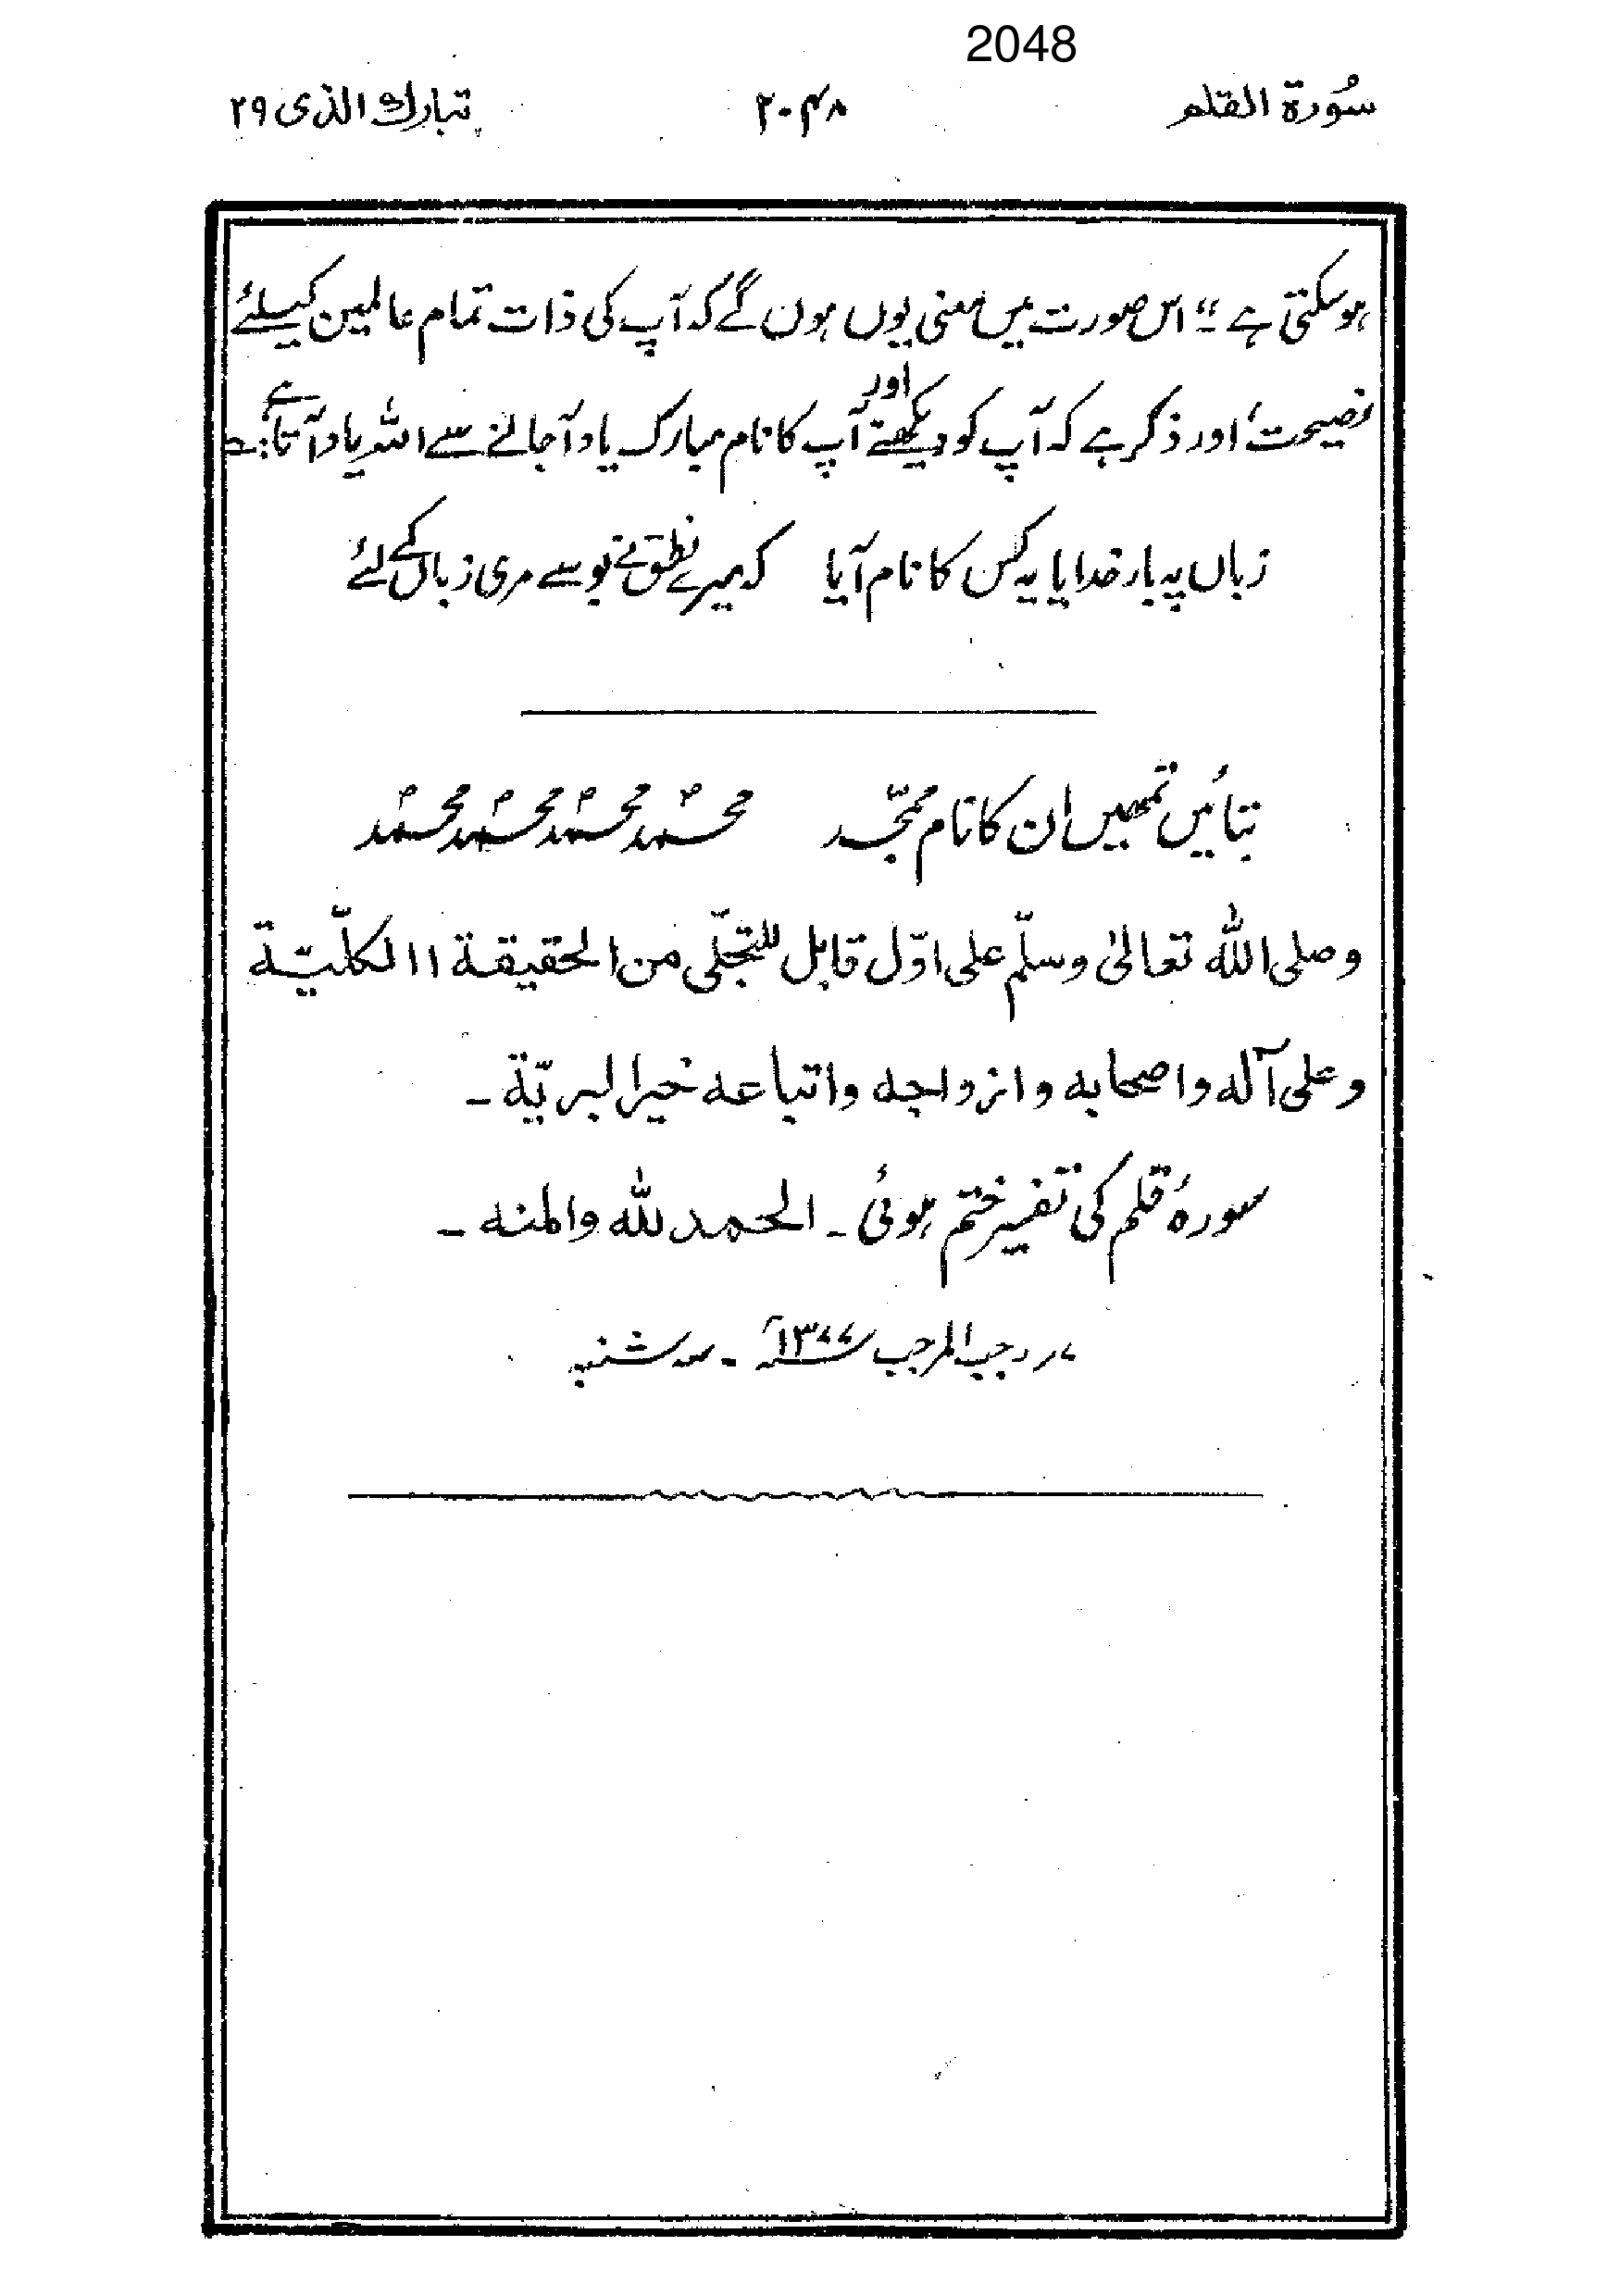 2048
سُورۃ القلم ۲۰۴۸ تبارك الذی ۲۹
ہوسکتی ہے ‘‘ اس صورت میں معنی یوں ہوں گے کہ آپ کی ذات تمام عالمین کیلئے
نصیحت اور ذکر ہے کہ آپ کو دیکھتے اور آپ کا نام مبارک یاد آجانے سے اللہ یاد آتا ہے
زباں پہ بار خدایا یہ کس کا نام آیا کہ میرے نطق نے بوسے مری زباں کے لئے
بتائیں تمھیں ان کا نام محمّد محمدؐ محمدؐ محمدؐ محمدؐ
وصلی اللہ تعالیٰ وسلّم علی اوّل قابل للتجلّی من الحقیقة االکلّیّة
وعلی آلہ واصحابہ وازواجہ واتباعہ خیر البریّة ۔
سورۂ قلم کی تفسیر ختم ہوئی ۔ الحمد للہ والمنہ ۔
۷؍ رجب المرجب ۱۳۷۷ھ ۔ سہ شنبہ